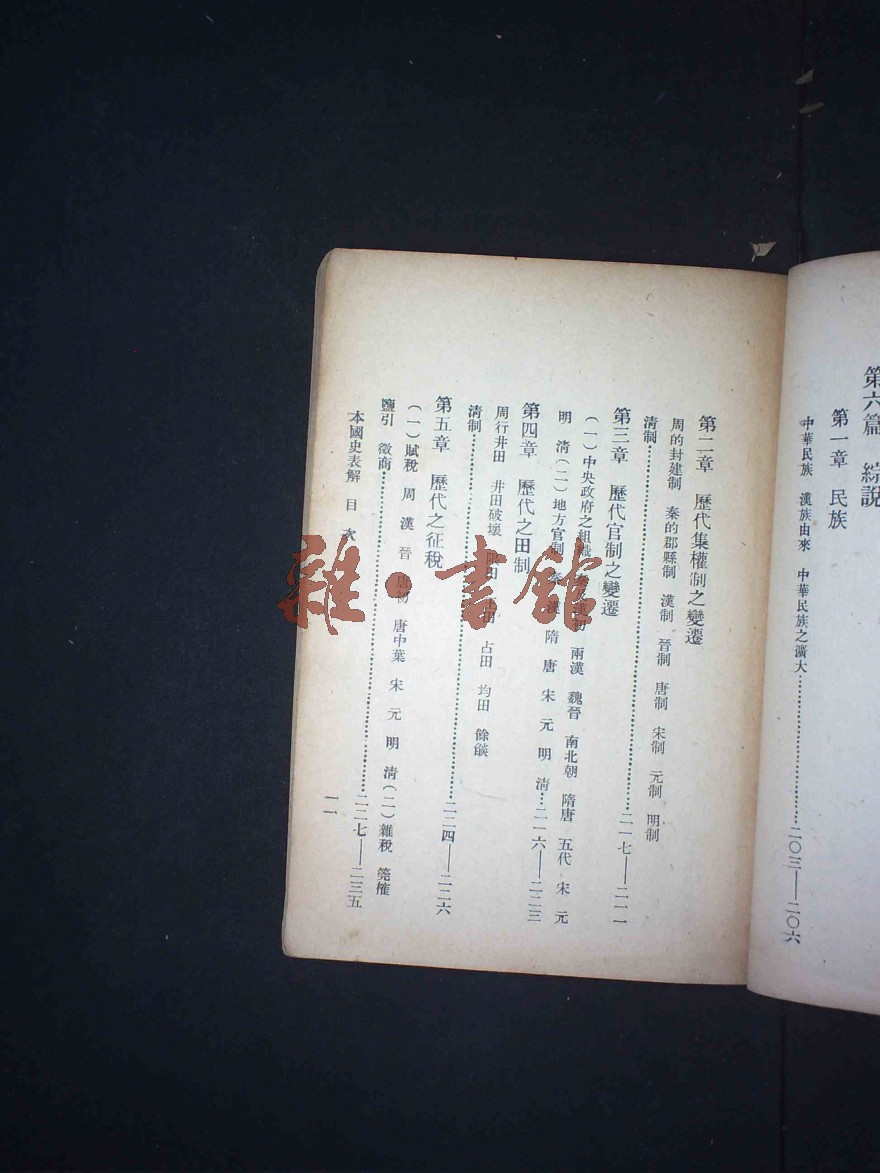 第六篇 綜說
第一章 民族
中華民族 漢族由來 中華民族之濱大……二〇三——二〇六
第二章 歷代集權制之變遷
周的封建制 秦的郡縣制 漢制 晉制 唐制 宋制 元制 明制
清制……二一七——二一一
第三章 歷代官制之變遷
(一)中央政府之組織 秦及漢初 兩漢 魏晉 南北朝 隋唐 五代 宋 元
明 清(二)地方官制 秦 漢 隋 唐 宋 元 明 清…二一六——二二三
第四章 歷代之田制
周行井田 井田破壞 限田 王田 占田 均田 餘談
清制……二二四——二二六
第五章 歷代之征稅
(一)賦稅 周 漢 晉 唐初 唐中葉 宋 元 明 清(二)雜稅 筦榷
鹽引 徵商……二二七——二三五
本國史表解 目次 一一
雜·書館